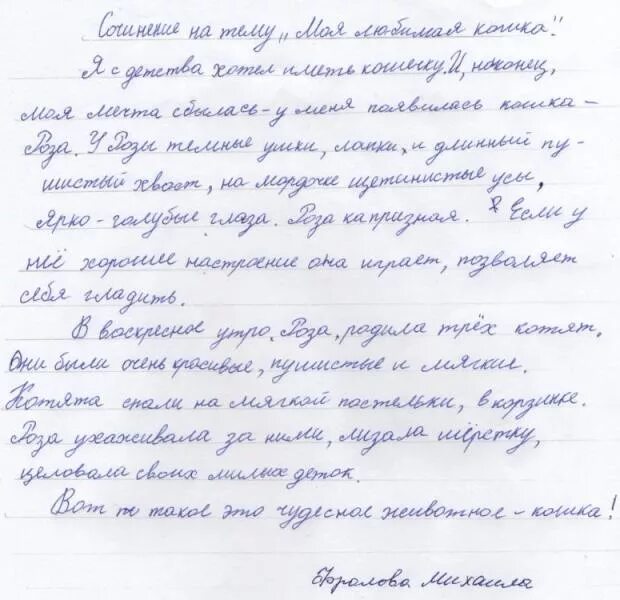 Сочинение на тему „Моя любимая кошка".
Я с детства хотел иметь кошечку. И, наконец,
моя мечта сбылась - у меня появилась кошка -
Роза. У Розы темные ушки, лапки, и длинный пу-
шистый хвост, на мордочке щетинистые усы,
ярко-голубые глаза. Роза капризная. Если у
неё хорошее настроение она играет, позволяет
себя гладить.
В воскресное утро, Роза, родила трёх котят.
Они были очень красивые, пушистые и мягкие.
Котята спали на мягкой постельки, в корзинке.
Роза ухаживала за ними, лизала шёрстку,
целовала своих милых деток.
Вот такое это чудесное животное - кошка!
Фролова Михаила